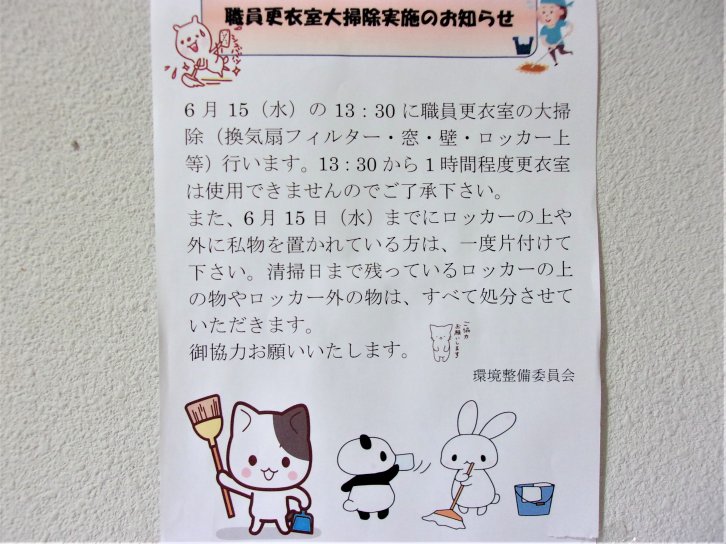 職員更衣室大掃除実施のお知らせ
6月15（水）の13：30に職員更衣室の大掃
除（換気扇フィルター・窓・壁・ロッカー上
等）行います。13：30から1時間程度更衣室
は使用できませんのでご了承下さい。
また、6月15日（水）までにロッカーの上や
外に私物を置かれている方は、一度片付けて
下さい。清掃日まで残っているロッカーの上
の物やロッカー外の物は、すべて処分させて
いただきます。
御協力お願いいたします。
ご協力
お願いします
環境整備委員会